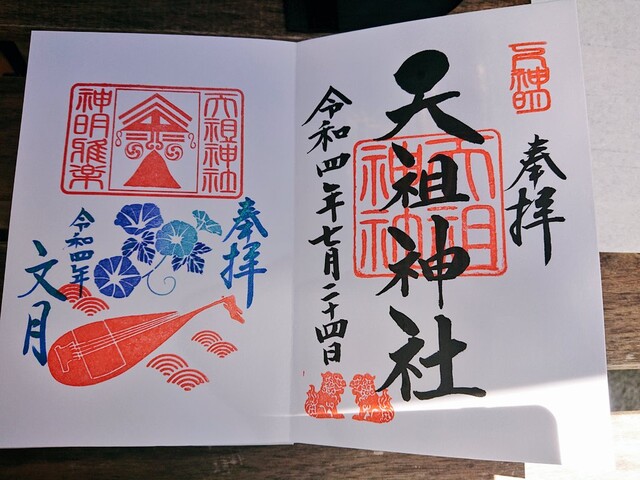 天神㐂
奉拝
天祖神社
天祖神社
令和四年七月二十四日
天祖神社
神明雅楽
奉拝
令和四年
文月